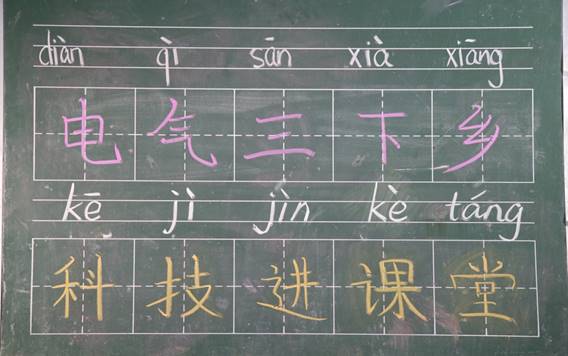 diàn qì sān xià xiāng
电气三下乡
kē jì jìn kè táng
科技进课堂